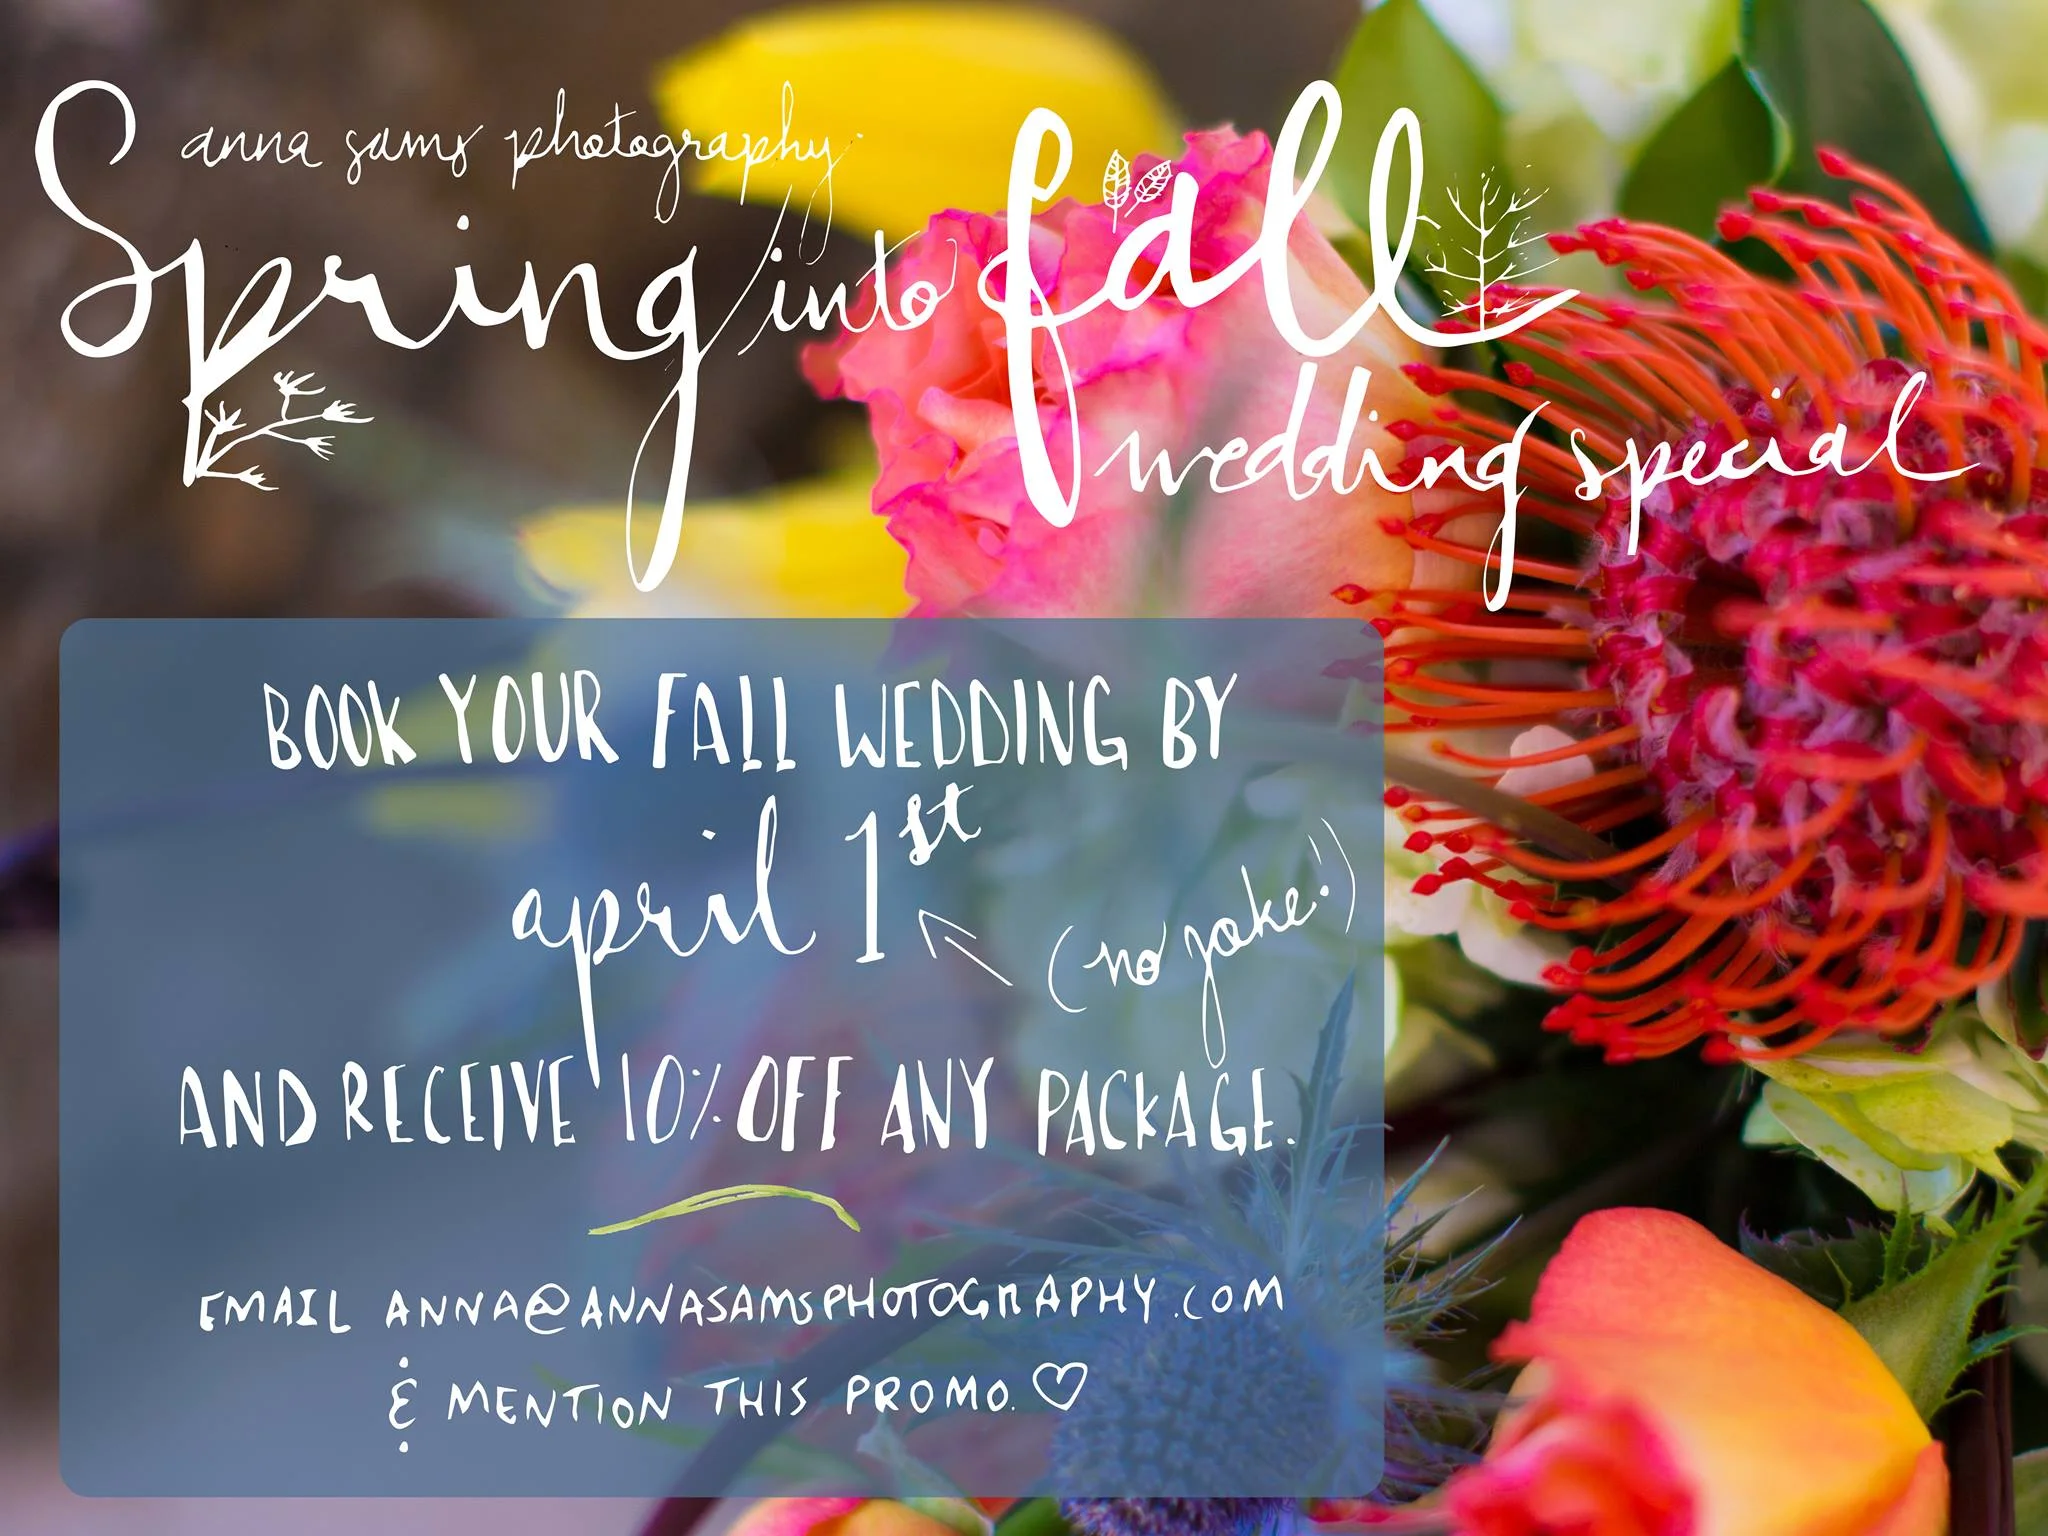 anna sams photography
Spring into fall
wedding special
BOOK YOUR FALL WEDDING BY
april 1st
(no joke!)
AND RECEIVE 10% OFF ANY PACKAGE.
EMAIL ANNA@ANNASAMSPHOTOGRAPHY.COM
& MENTION THIS PROMO. ♡